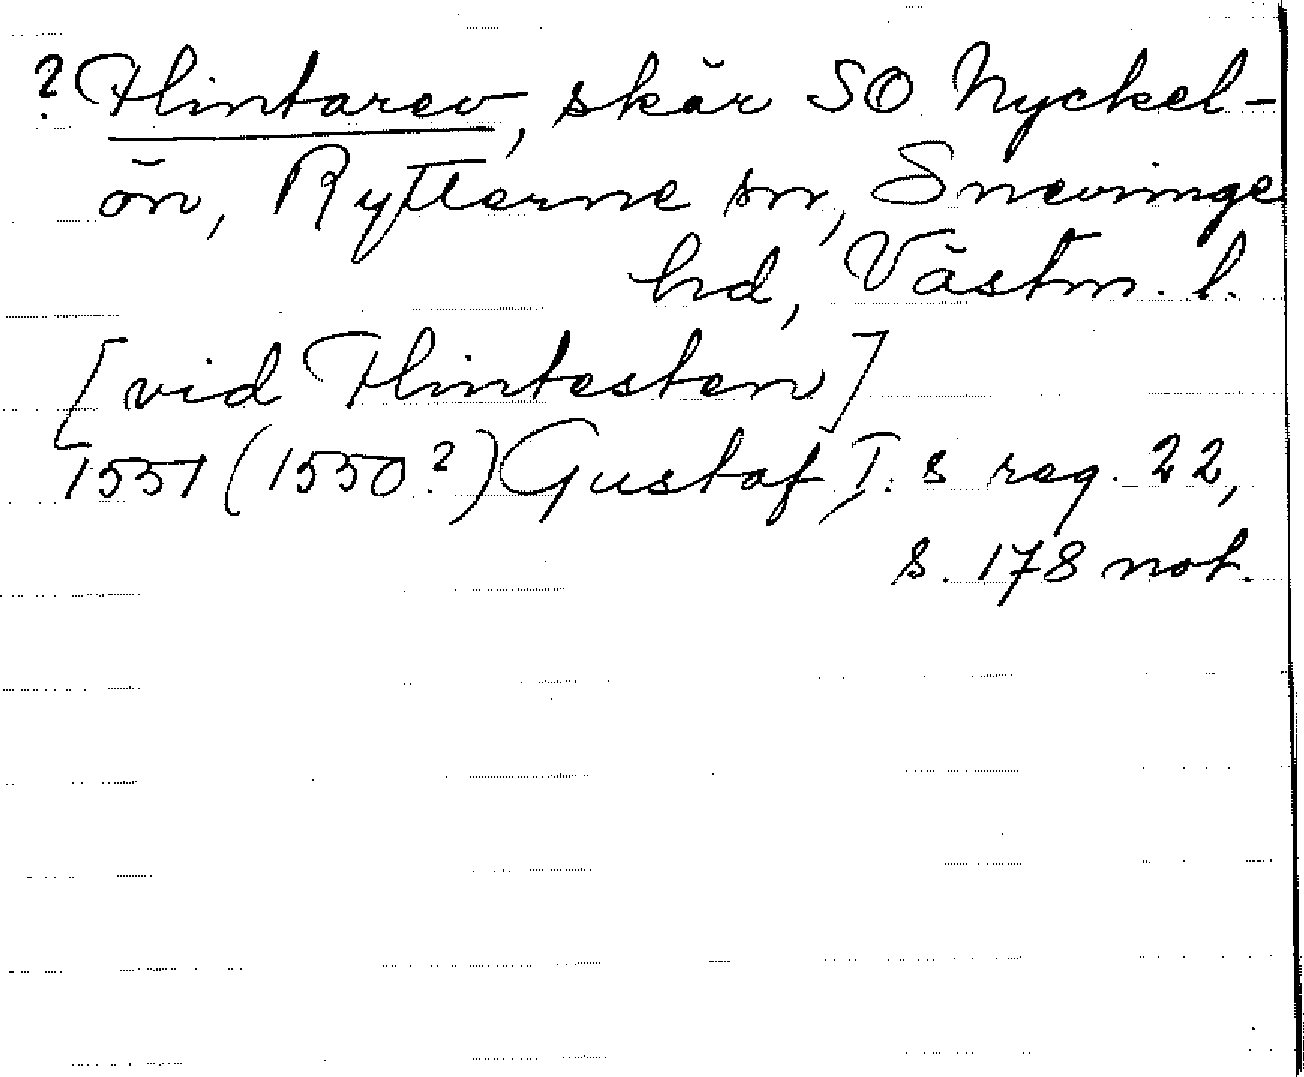 ? Flintarev, skär SO Nyckel-
ön, Rytterne sn, Snevringe
hd, Västm. l.
[vid Flintesten]
1551 (1550?) Gustaf I:s reg. 22,
s. 178 not.